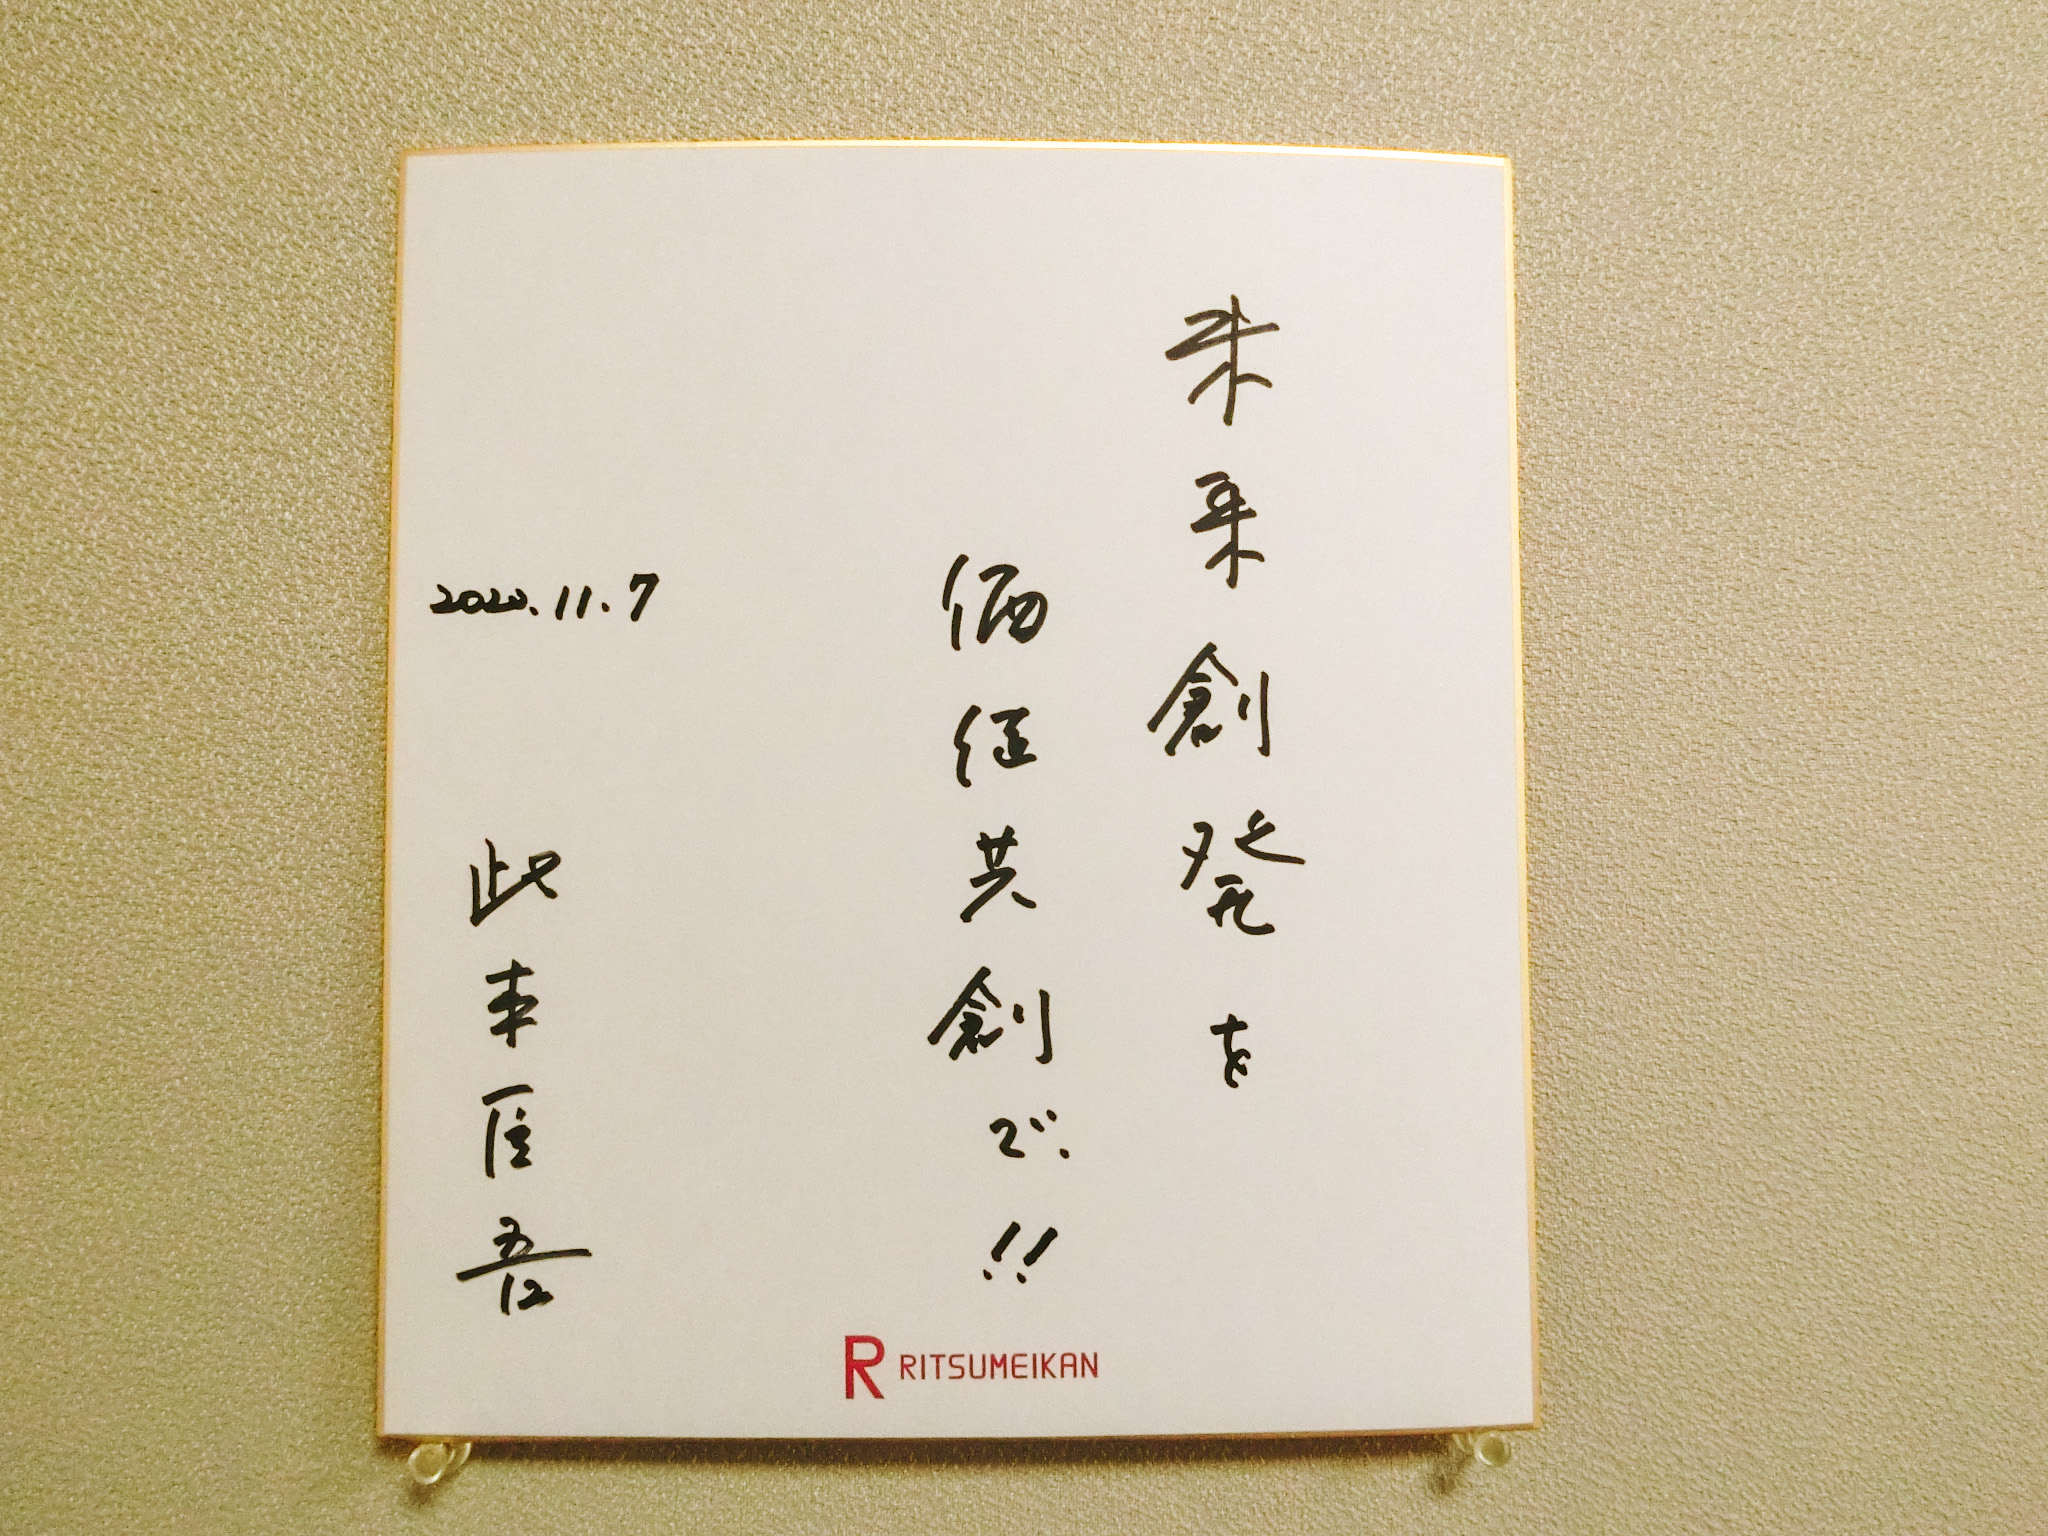 未来創発を
価値共創で.!!
2020.11.7
此本臣吾
R RITSUMEIKAN